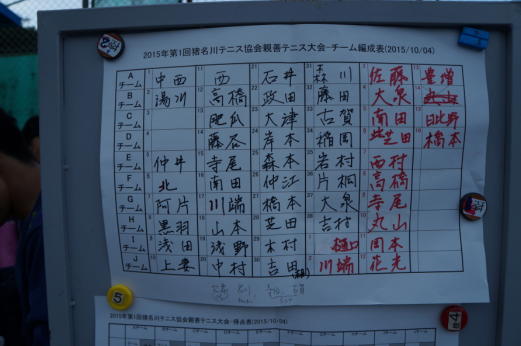 2015年第1回猪名川テニス協会親善テニス大会-チーム編成表(2015/10/04)
Aチーム 中西 西 石井 森川 佐藤 豊増
Bチーム 湯川 高橋 政田 藤田 大泉
Cチーム 肥瓜 大津 古賀 南田 日比野
Dチーム 藤谷 岸本 稲岡 此芝田 橋本
Eチーム 仲井 寺尾 森本 岩村 西村
Fチーム 北 南田 仲江 片桐 高橋
Gチーム 阿片 川端 橋本 大泉 寺尾
Hチーム 黒羽 山本 芝田 吉村 丸山
Iチーム 浅田 浅野 木村 樋口 岡本
Jチーム 上妻 中村 吉田 川端 花光
5
4
2015年第1回猪名川テニス協会親善テニス大会-得点表(2015/10/04)